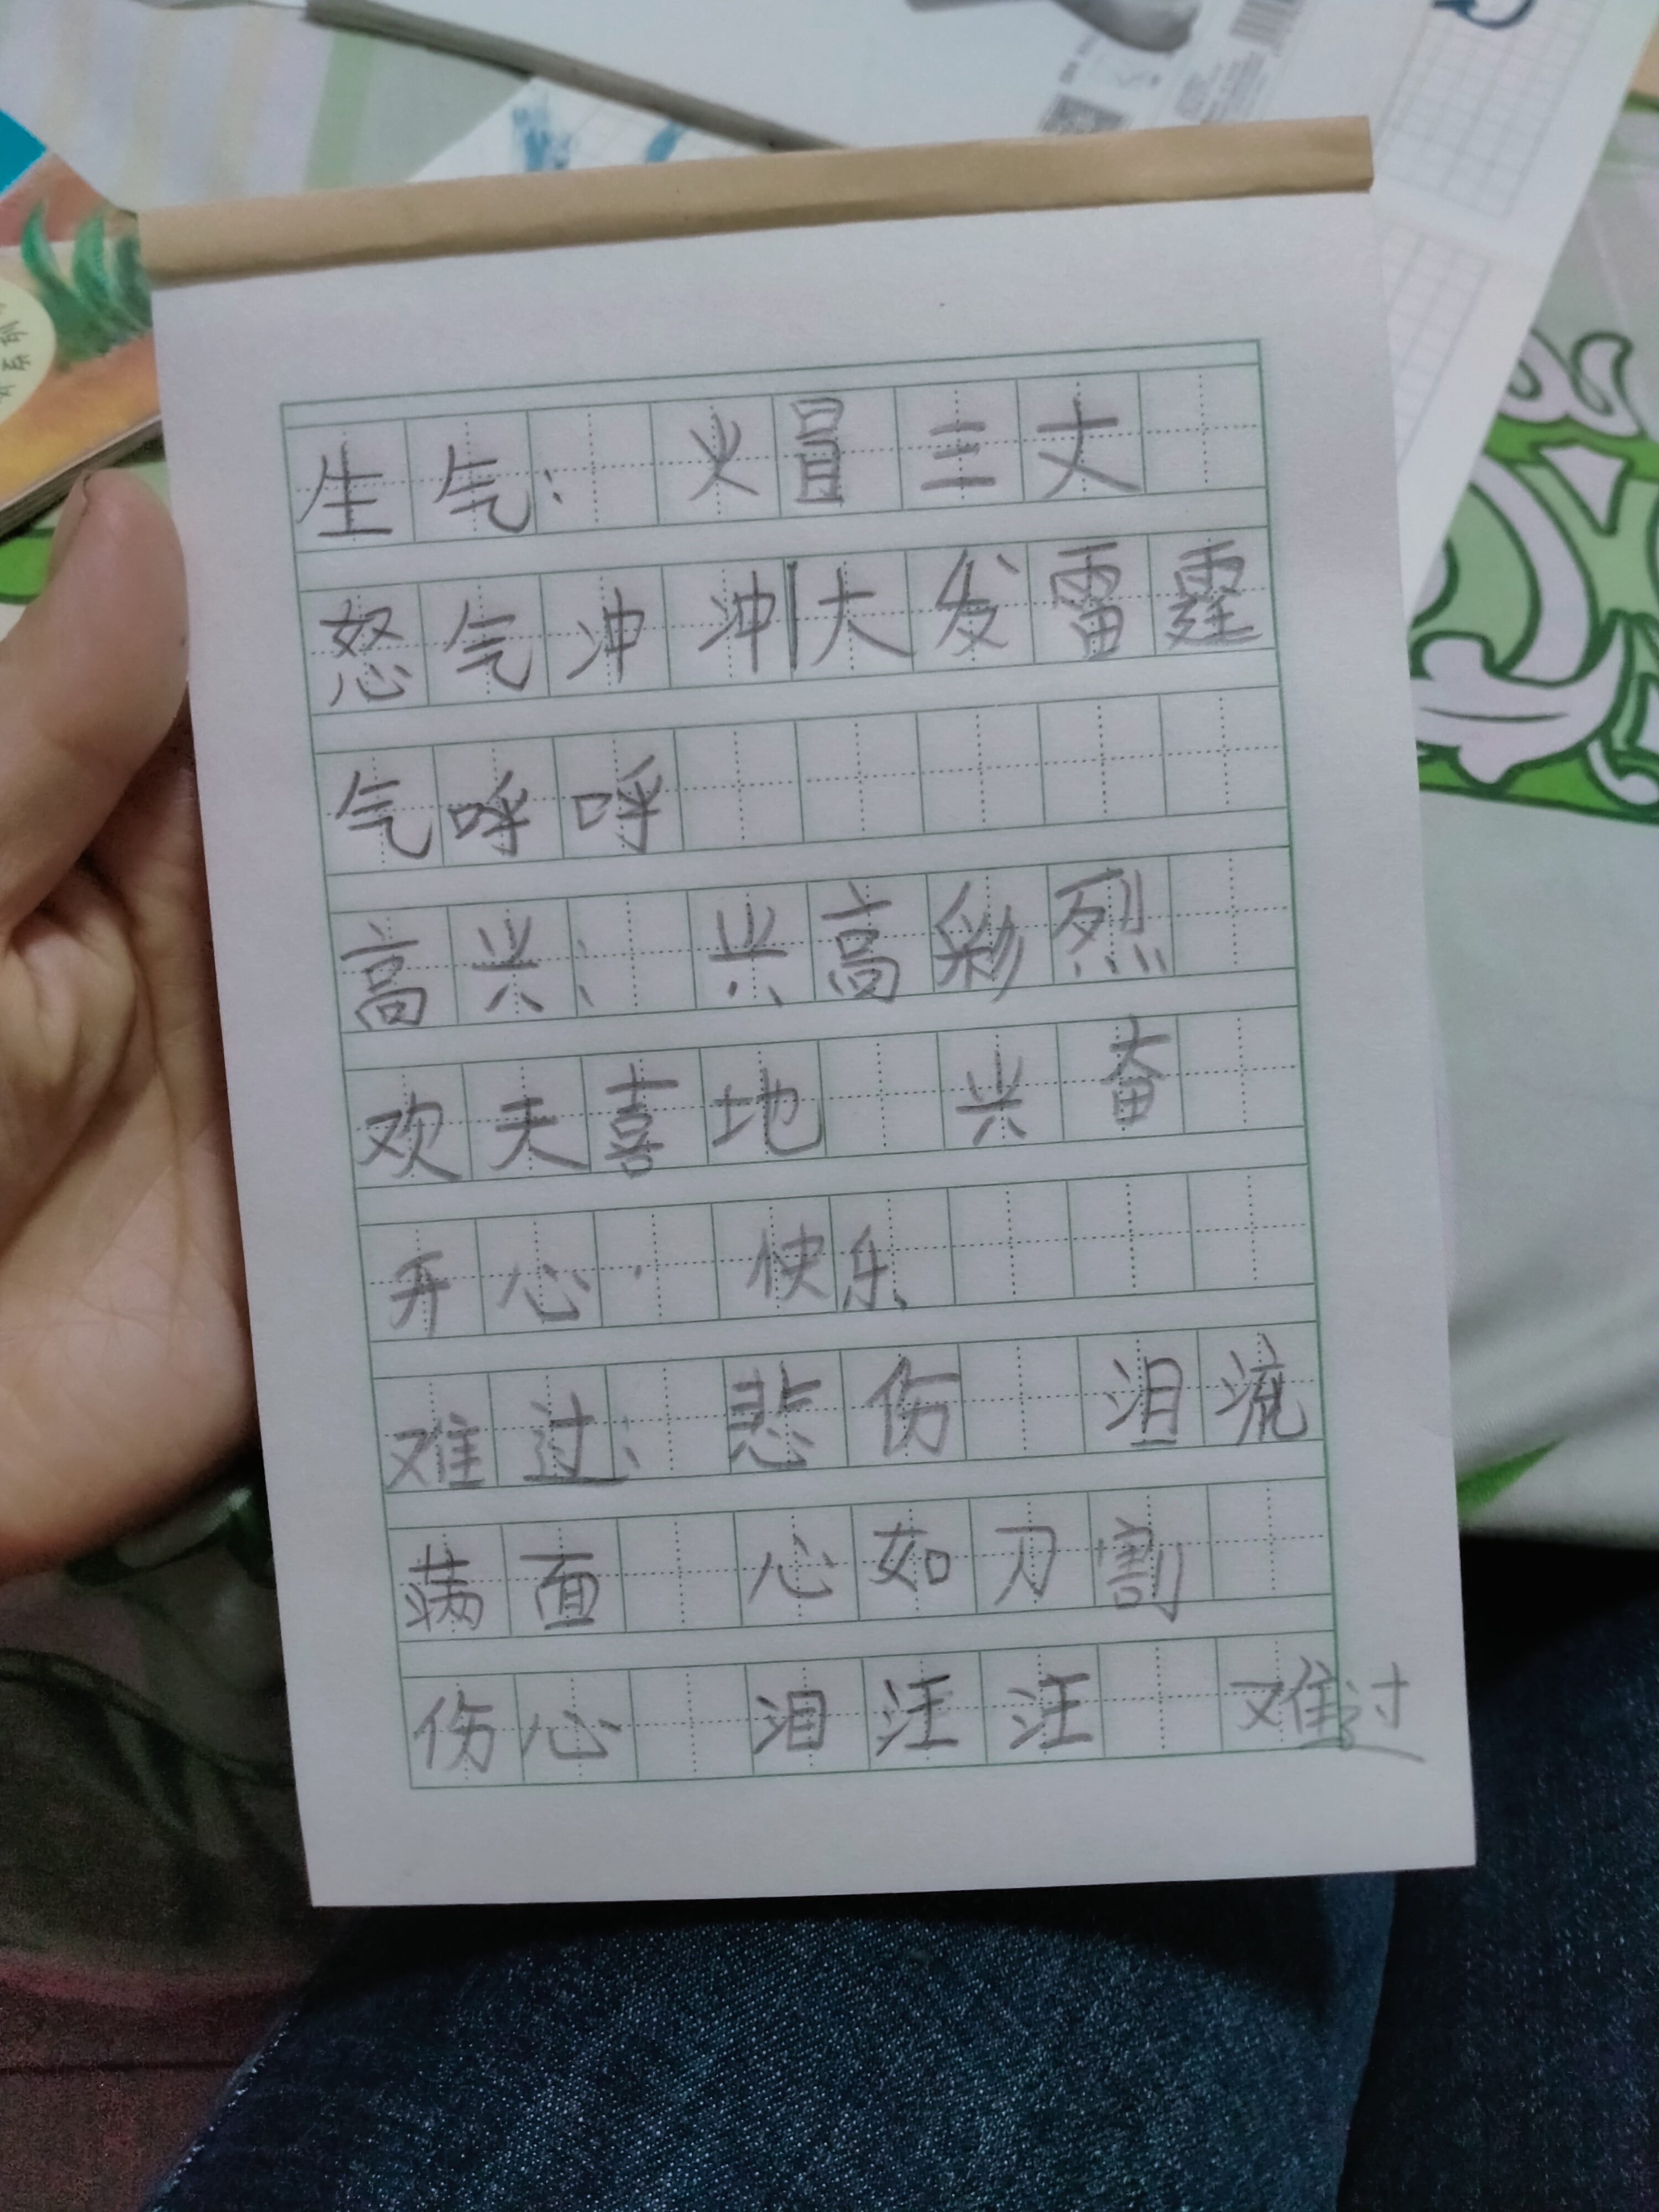 生气： 火冒三丈
怒气冲冲|大发雷霆
气呼呼
高兴： 兴高彩烈
欢天喜地 兴奋
开心· 快乐
难过： 悲伤 泪流
满面 心如刀割
伤心 泪汪汪 难过
系列